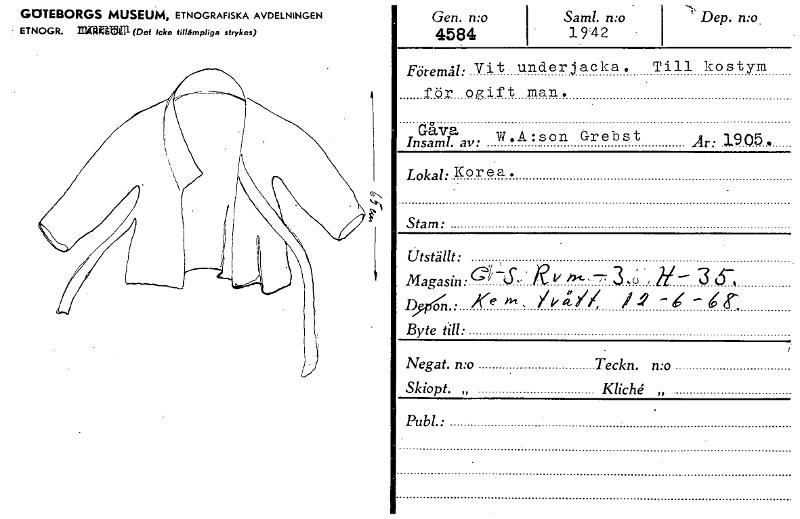 GÖTEBORGS MUSEUM, ETNOGRAFISKA AVDELNINGEN
ETNOGR. (Det icke tillämpliga strykes)
65 cm
Gen. n:o Saml. n:o Dep. n:o
4584 1942
Föremål: Vit underjacka. Till kostym
för ogift man.
Gåva
Insaml. av: W.A:son Grebst År: 1905.
Lokal: Korea.
Stam:
Utställt:
Magasin: G-S. Rvm-3. H-35.
Depon.: Kem. tvätt. 12-6-68.
Byte till:
Negat. n:o Teckn. n:o
Skiopt. „ Kliché „
Publ.: